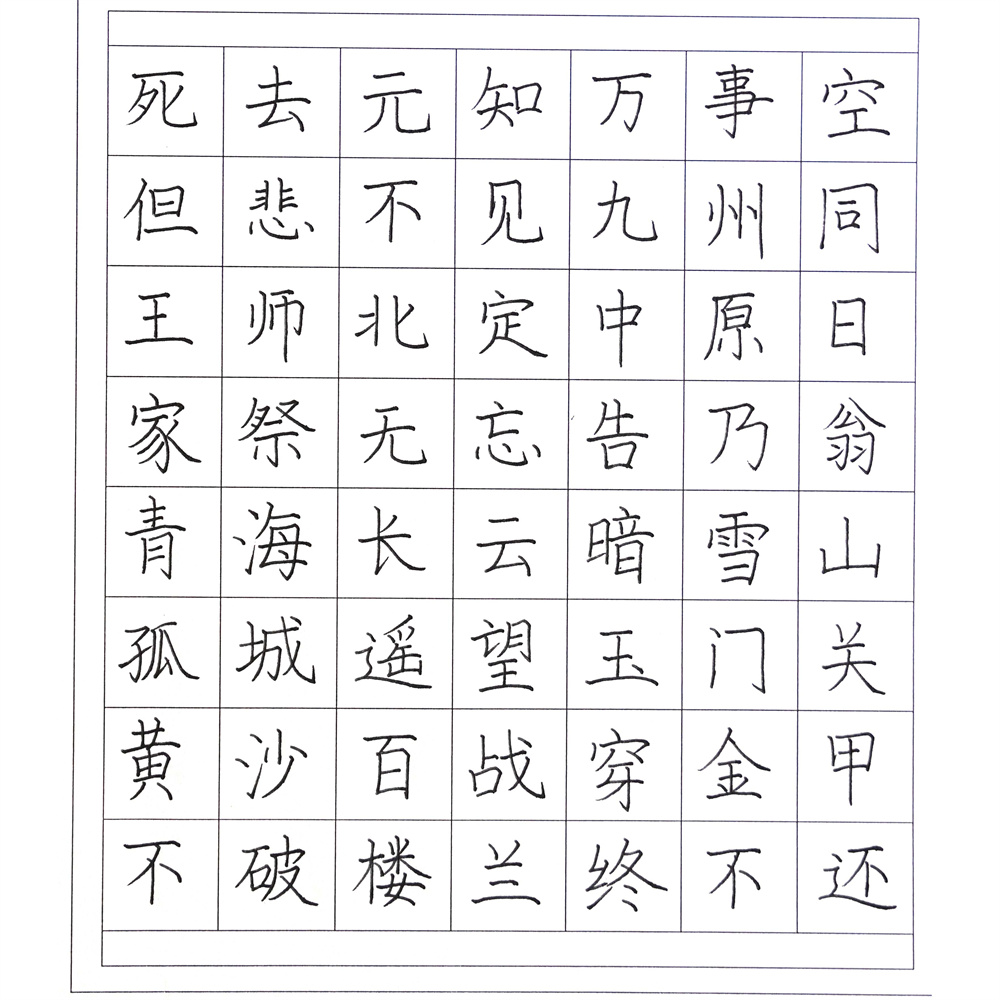 死去元知万事空
但悲不见九州同
王师北定中原日
家祭无忘告乃翁
青海长云暗雪山
孤城遥望玉门关
黄沙百战穿金甲
不破楼兰终不还